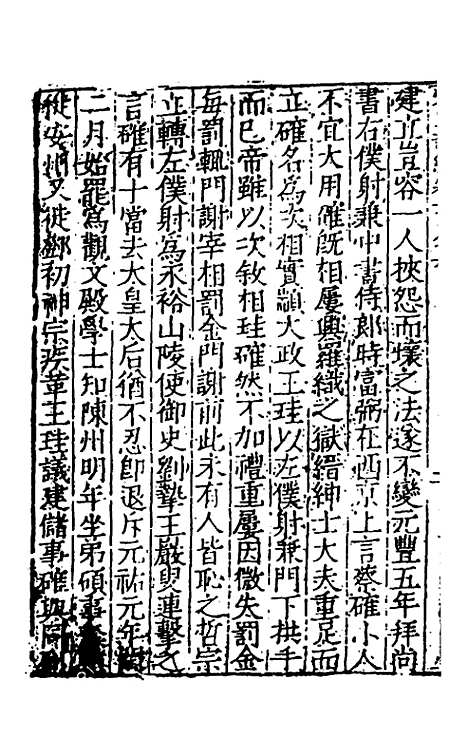 建立豈容一人挾怨而壞之法遂不變元豐五年拜尚
書右僕射兼中書侍郎時富弼在西京上言蔡確小人
不宜大用確既相屢興羅織之獄縉紳士大夫重足而
立確名為次相實顓大政王珪以左僕射兼門下拱手
而已帝雖以次敘相珪確然不加禮重屢因微失罰金
每罰輒門謝宰相罰金門謝前此未有人皆恥之哲宗
立轉左僕射為永裕山陵使御史劉摯王巖叟連擊之
言確有十當去太皇太后猶不忍即退斥元祐元年閏
二月始罷為觀文殿學士知陳州明年坐弟碩事
徙安州又徙鄧初神宗疾革王珪議建儲事確與同